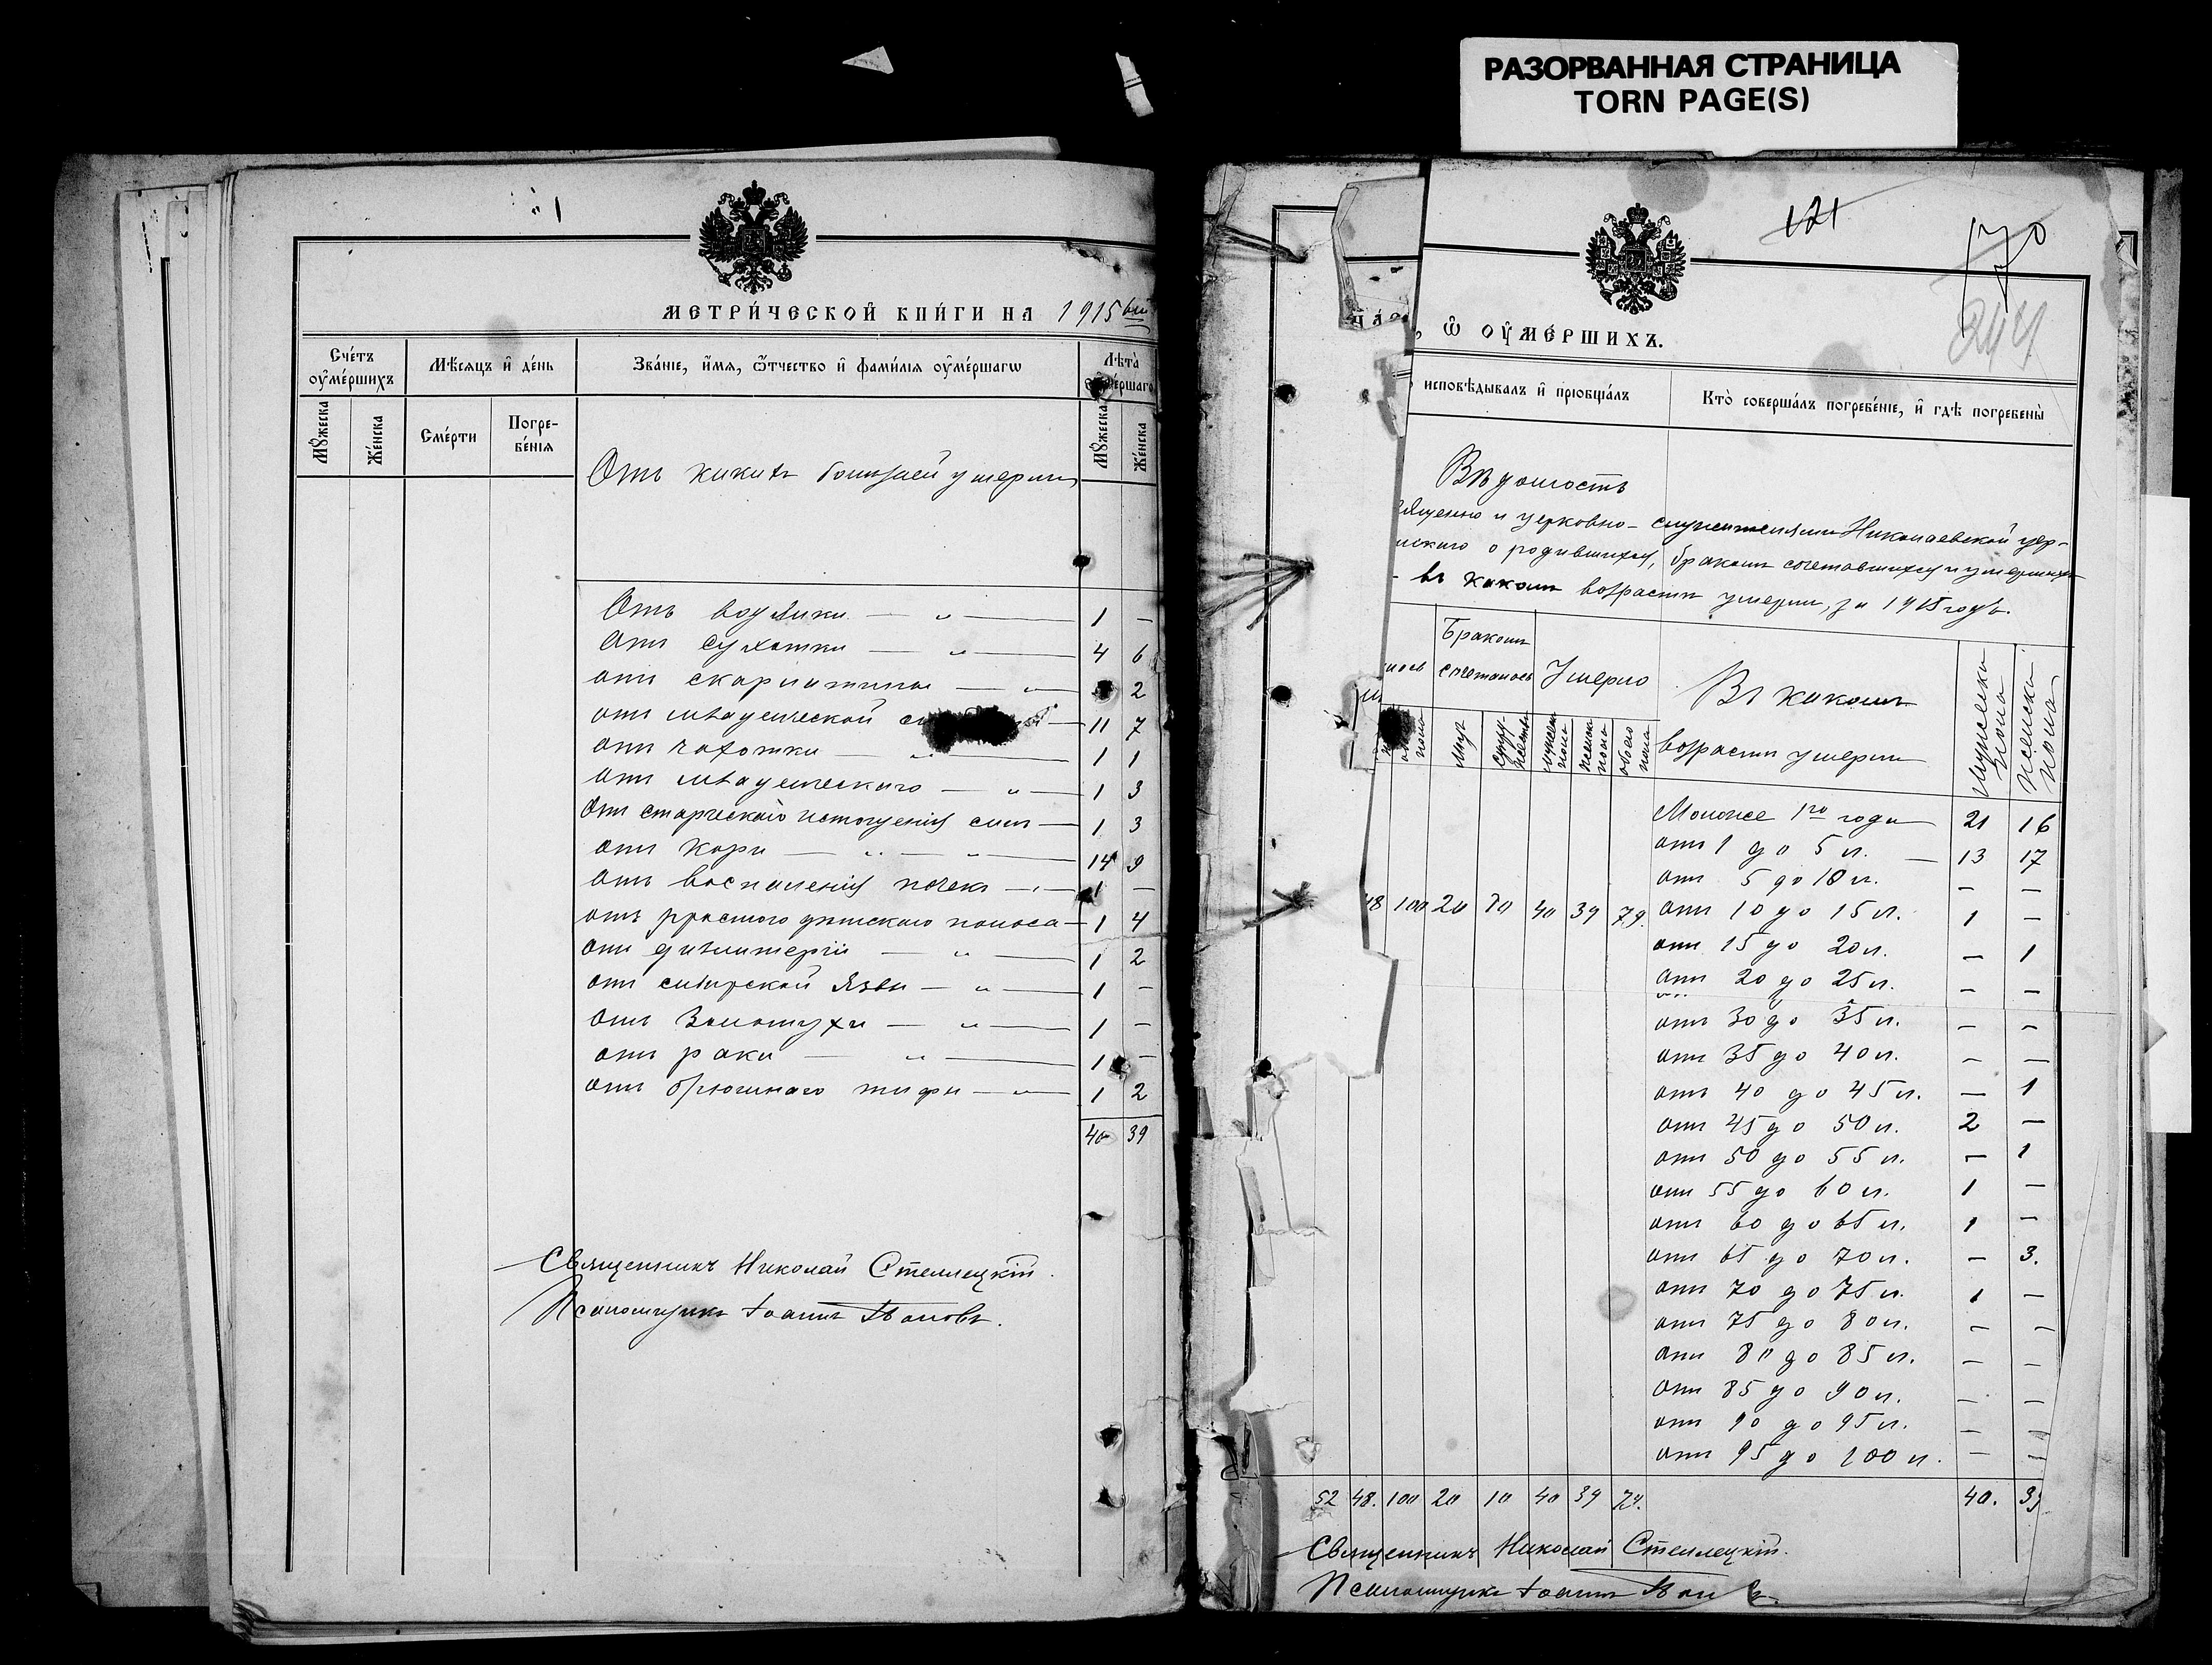 РАЗОРВАННАЯ СТРАНИЦА
TORN PAGE(S)
МЕТРИ́ЧЕСКОЙ КНИ́ГИ НА 1915
Сче́тъ ѹ҆ме́ршихъ
Мѣ́сяцъ и҆ де́нь
Зва́нїе, и҆́мѧ, ѻ҆́тчество и҆ фами́лїѧ ѹ҆ме́ршагѡ
Лѣта̀
Мꙋ́жеска
Же́нска
Сме́рти
Погре-
бе́нїѧ
Мꙋ́жеска
Же́нска
Отъ какихъ болѣзней умерли
Отъ водянки — „ — 1 —
Отъ сухотки — „ — 4 6
отъ скарлатины — „ — 2
отъ младенческой 11 7
отъ чахотки — „ — 1 1
отъ младенческаго — „ — 1 3
Отъ старческаго истощенія силъ — 1 3
отъ кори — „ — „ — 14 9
отъ воспаленія почекъ — „ — 1 —
отъ простого дѣтскаго поноса — 1 4
отъ дизентеріи — „ — 1 2
отъ сибирской язвы — „ — 1 —
отъ Золотухи — „ — 1 —
отъ рака — „ — 1 —
отъ брюшнаго тифа — „ — 1 2
40 39
Священникъ Николай Стеллецкій.
Псаломщикъ Іоаннъ
121
70
244
ѡ҆ ѹ҆ме́ршихъ.
исповѣ́дывалъ и҆ прїѡбща́лъ
Кто̀ соверша́лъ погребе́нїе, и҆ гдѣ̀ погребены̀
Вѣдомость
и церковно-служителями Николаевской цер-
о родившихся, бракомъ сочетавшихся и умершихъ
въ какомъ возрастѣ умерли, за 1915 годъ.
Бракомъ
сочеталось
Умерло
Въ какомъ
возрастѣ умерли
мужеска пола
женска пола
обоего пола
мужеска пола
женска пола
Моложе 1го года — 21 16
отъ 1 до 5 л. — 13 17
отъ 5 до 10 л. — —
48 100 20 20 40 39 79. отъ 10 до 15 л. 1 —
отъ 15 до 20 л. — 1
отъ 20 до 25 л. — —
отъ 30 до 35 л. — —
отъ 35 до 40 л. — —
отъ 40 до 45 л. — 1
отъ 45 до 50 л. 2 —
отъ 50 до 55 л. — 1
отъ 55 до 60 л. 1 —
отъ 60 до 65 л. 1 —
отъ 65 до 70 л. — 3.
отъ 70 до 75 л. 1 —
отъ 75 до 80 л. — —
отъ 80 до 85 л. — —
отъ 85 до 90 л. — —
отъ 90 до 95 л. — —
отъ 95 до 100 л. — —
52 48. 100 20 10 40 39 79. 40. 39
Священникъ Николай Стеллецкій.
Псаломщикъ Іоаннъ